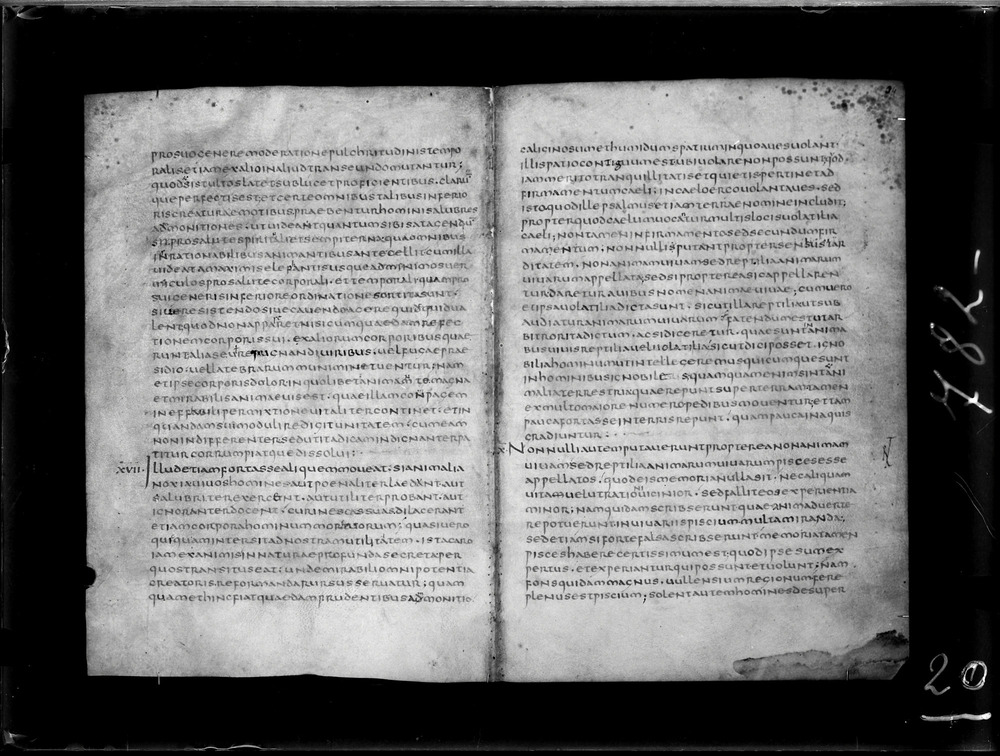 prosuogeneremoderationepulchritudinistempo
ralisetiamexalioinaliudtranseundomutantur;
quodsistultoslatetsublucetproficientibus·clarum
queperfectisest;etcerteomnibustalibusinferio
riscreaturaemotibuspraebenturhominisalubres
admonitiones·utvideantquantumsibisatagendum
sitprosalutespiritalietsempiternaquaomnibus
inrationabilibusanimantibusantecellitcumilla
videatamaximiselephantisusqueadminimosver
miculosprosalutecorporali·ettemporaliquampro
suigenerisinferioreordinationesortitasunt·
sivéresistendosivecavendoagerequidquidva
lentquodnonapparetnisicumquaedamrefec
tionemcorporissui·exaliorumcorporibusquae
runtaliaseverepugnandiviribus·velfugaeprae
sidio·vellatebrarummuniminetuentur;nam
etipsecorporisdolorinquolibetanimantemagna
etmirabilisanimaevisest·quaeillamconpagem
ineffabilipermixtionevitalitercontinet·etin
quandamsuimoduliredigitunitatem·cumeam
nonindifferentersedutitadicamindignanterpa
titurcorrumpiatquedissolvi:
xvii· Illudetiamfortassealiquemmoveat·sianimalia
noxiavivoshominesautpoenaliterlaedunt·aut
salubriterexercent·aututiliterprobant·aut
ignoranterdocent·curinescassuasdilacerant
etiamcorporahominummortuorum;quasivero
quicquamintersitadnostramutilitatem·istacaro
iamexanimisinnaturaeprofundasecretaper
quostransituseat·undemirabiliomnipotentia
creatorisreformandarursusservatur;quam
quamethincfiatquaedamprudentibusadmonitio·
caliginosumethumidumspatiuminquoavesvolant·
illispatiocontiguumestubivolarenonpossunt;quod·
iammeritotranquillitatisetquietispertinetad
firmamentumcaeli;incaeloergovolantaves·sed
istoquodillepsalmusetiamterraenomineincludit;
propterquodcaelumvocaturmultislocisvolatilia
caeli;nontameninfirmamentosedsecundumfir
mamentum·nonnulliputantproptersensustar
ditatem·nonanimamvivamsedreptiliaanimarum
vivarumappellata;sedsipropterea sicappellaren
turdareturavibusnomenanimaevivae;cumvero
etipsavolatiliadictasunt·sicutillareptiliautsub
audiaturanimarumvivarum·fatendumestutar
bitrorítadictum·acsidiceretur·quaesuntinanima
busvivisreptiliavelvolatilia·sicutdiciposset·igno
biliahominumutintellegeremusquicumquesunt
inhominibusignobiles·quamquamenimsintani
maliaterrestriaquaerepuntsuperterramtamen
exmultomaiorenumeropedibusmoventuretfam
paucafortasseinterrisrepunt·quampaucainaquis
gradiuntur:
Nonnulliautemputaveruntproptereanonanimam
vivamsedreptiliaanimarumvivarumpiscesesse
appellatos·quodeismemorianullasit·necaliquam
vitamvelutrationivicinior·sedfalliteosexperientia
minor;namquidamscribseruntquaeanimadverte
repotueruntinvivariispisciummultamiranda;
sedetiamsifortefalsascribseruntmemoriamtamen
pisceshaberecertissimumest;quodipsesumex
pertus·etexperianturquipossuntetvolunt;nam
fonsquidammagnus·bullensiumregionumfere
plenusestpiscium;solentautemhominesdesuper
782
20